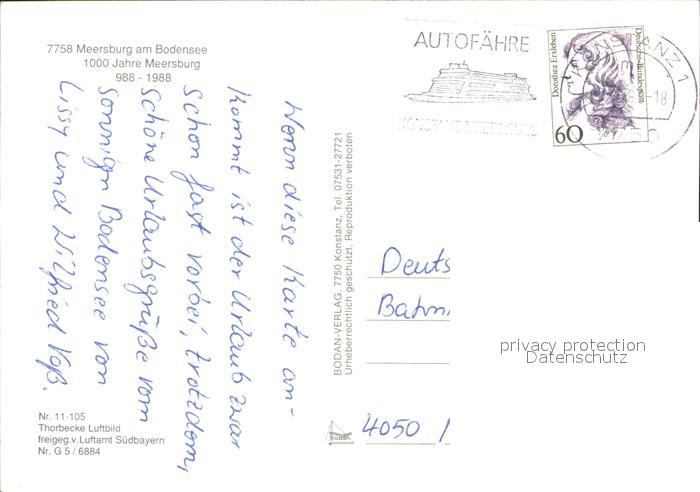 7758 Meersburg am Bodensee
1000 Jahre Meersburg
988 - 1988
Wenn diese Karte an-
kommt ist der Urlaub zwar
schon fast vorbei, trotzdem,
schöne Urlaubsgrüße vom
sonnigen Bodensee von
Lissy und Wilfried Voß.
Nr. 11-105
Thorbecke Luftbild
freigeg.v.Luftamt Südbayern
Nr. G 5 / 6884
BODAN-VERLAG, 7750 Konstanz, Tel. 07531-27721
Urheberrechtlich geschützt, Reproduktion verboten
BODAN
AUTOFÄHRE
KONSTANZ-MEERSBURG
Dorothea Erxleben
Deutsche Bundespost
60
1
-18
Deuts
Bahn
4050
privacy protection
Datenschutz